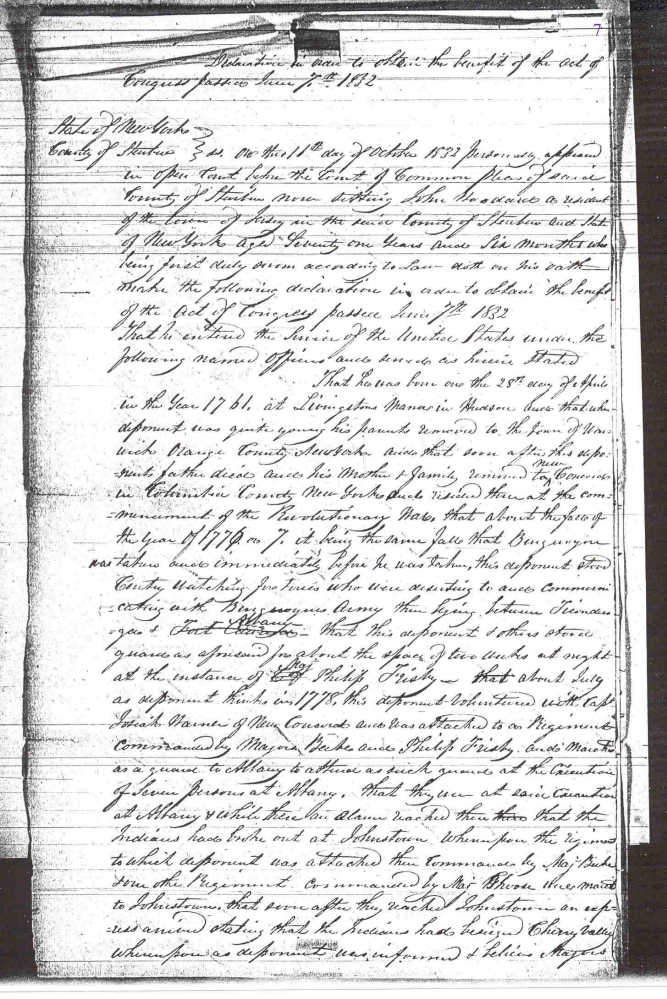 7
Declaration in order to obtain the benefit of the act of
Congress passed June 7th 1832
State of New York
County of Steuben } ss. On this 11th day of October 1832 personally appeared
in open Court before the Court of Common pleas of said
County of Steuben now sitting John Woodard a resident
of the town of in the said County of Steuben and State
of New York aged Seventy one Years and Six months who
being first duly sworn according to Law doth on his oath
make the following declaration in order to obtain the benefit
of the Act of Congress passed June 7th 1832
That he entered the Service of the United States under the
following named Officers and served as herein Stated
That he was born on the 28th day of April
in the Year 1761. at Livingstons Manor in Hudson and that when
deponent was quite young his parents removed to the town of War-
wick Orange County New York and that soon after this depo-
nents father died and his Mother & family removed to new Concord
in Columbia County New York and resided there at the com-
mencement of the Revolutionary War, that about the fall of
the Year of 1776 or 7. it being the same fall that Burgoyne
was taken and immediately before he was taken, this deponent stood
Centry watching for tories who were deserting to and communi-
cating with Burgoynes Army then lying between Ticonder-
oga & Albany - that this deponent & others stood
guard as aforesaid for about the space of two weeks at night
at the instance of Maj Philip Frisby - that about July
as deponent thinks in 1778, this deponent Volunteered with Capt
Josiah Warner of New Concord and was attached to a Regiment
Commanded by Majors Beebe and Philip Frisby. and Marched
as a guard to Albany to attend as such guard at the Execution
of Seven Persons at Albany. that they were at said Execution
at Albany & while there an alarm reached them that the
Indians had broke out at Johnstown Whereupon the regiment
to which deponent was attached then Commanded by Maj Beebe
& one other Regiment commanded by Maj were march
to Johnstown, that soon after they reached Johnstown an exp-
ress arrived stating that the Indians had besieged Cherry Valley
Whereupon as deponent was informed & believes Majors